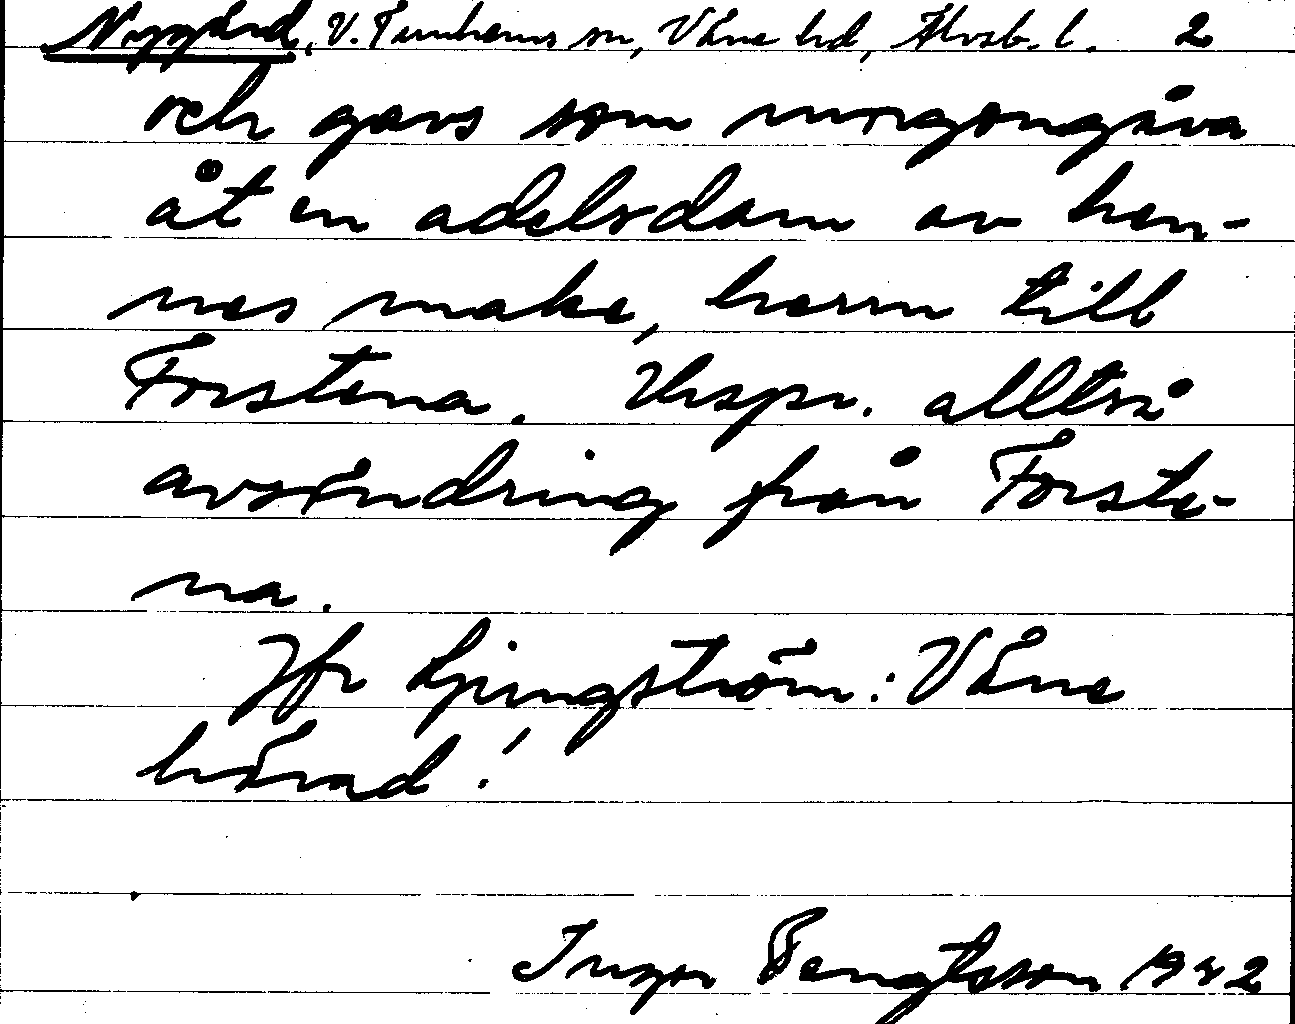 Nygård, V. Tunhems sn, Väne hd, Älvsb. l. 2
och gavs som morgongåva
åt en adelsdam av hen-
nes make, herrn till
Forstena. Urspr. alltså
avsöndring från Forste-
na.
Jfr Ljungström: Väne
härad!
Inger Bengtsson 1942